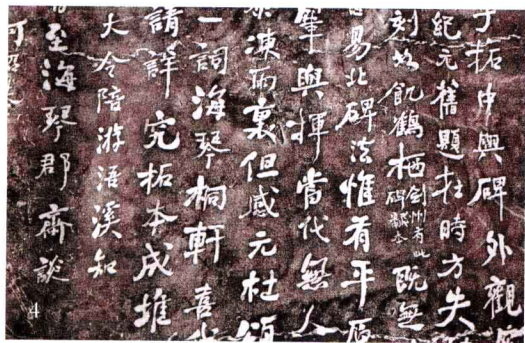 拓中興碑外觀
紀元舊題壯時方失
刻如飢鶴栖劍州有此碑本既無
易北碑法惟有平原
筆與揮當代無人
凍雨裏但感元杜頌
一詞海琴桐軒喜
請詳完拓本成堆
大令陪游浯溪知
至海琴郡齋談
何紹
4